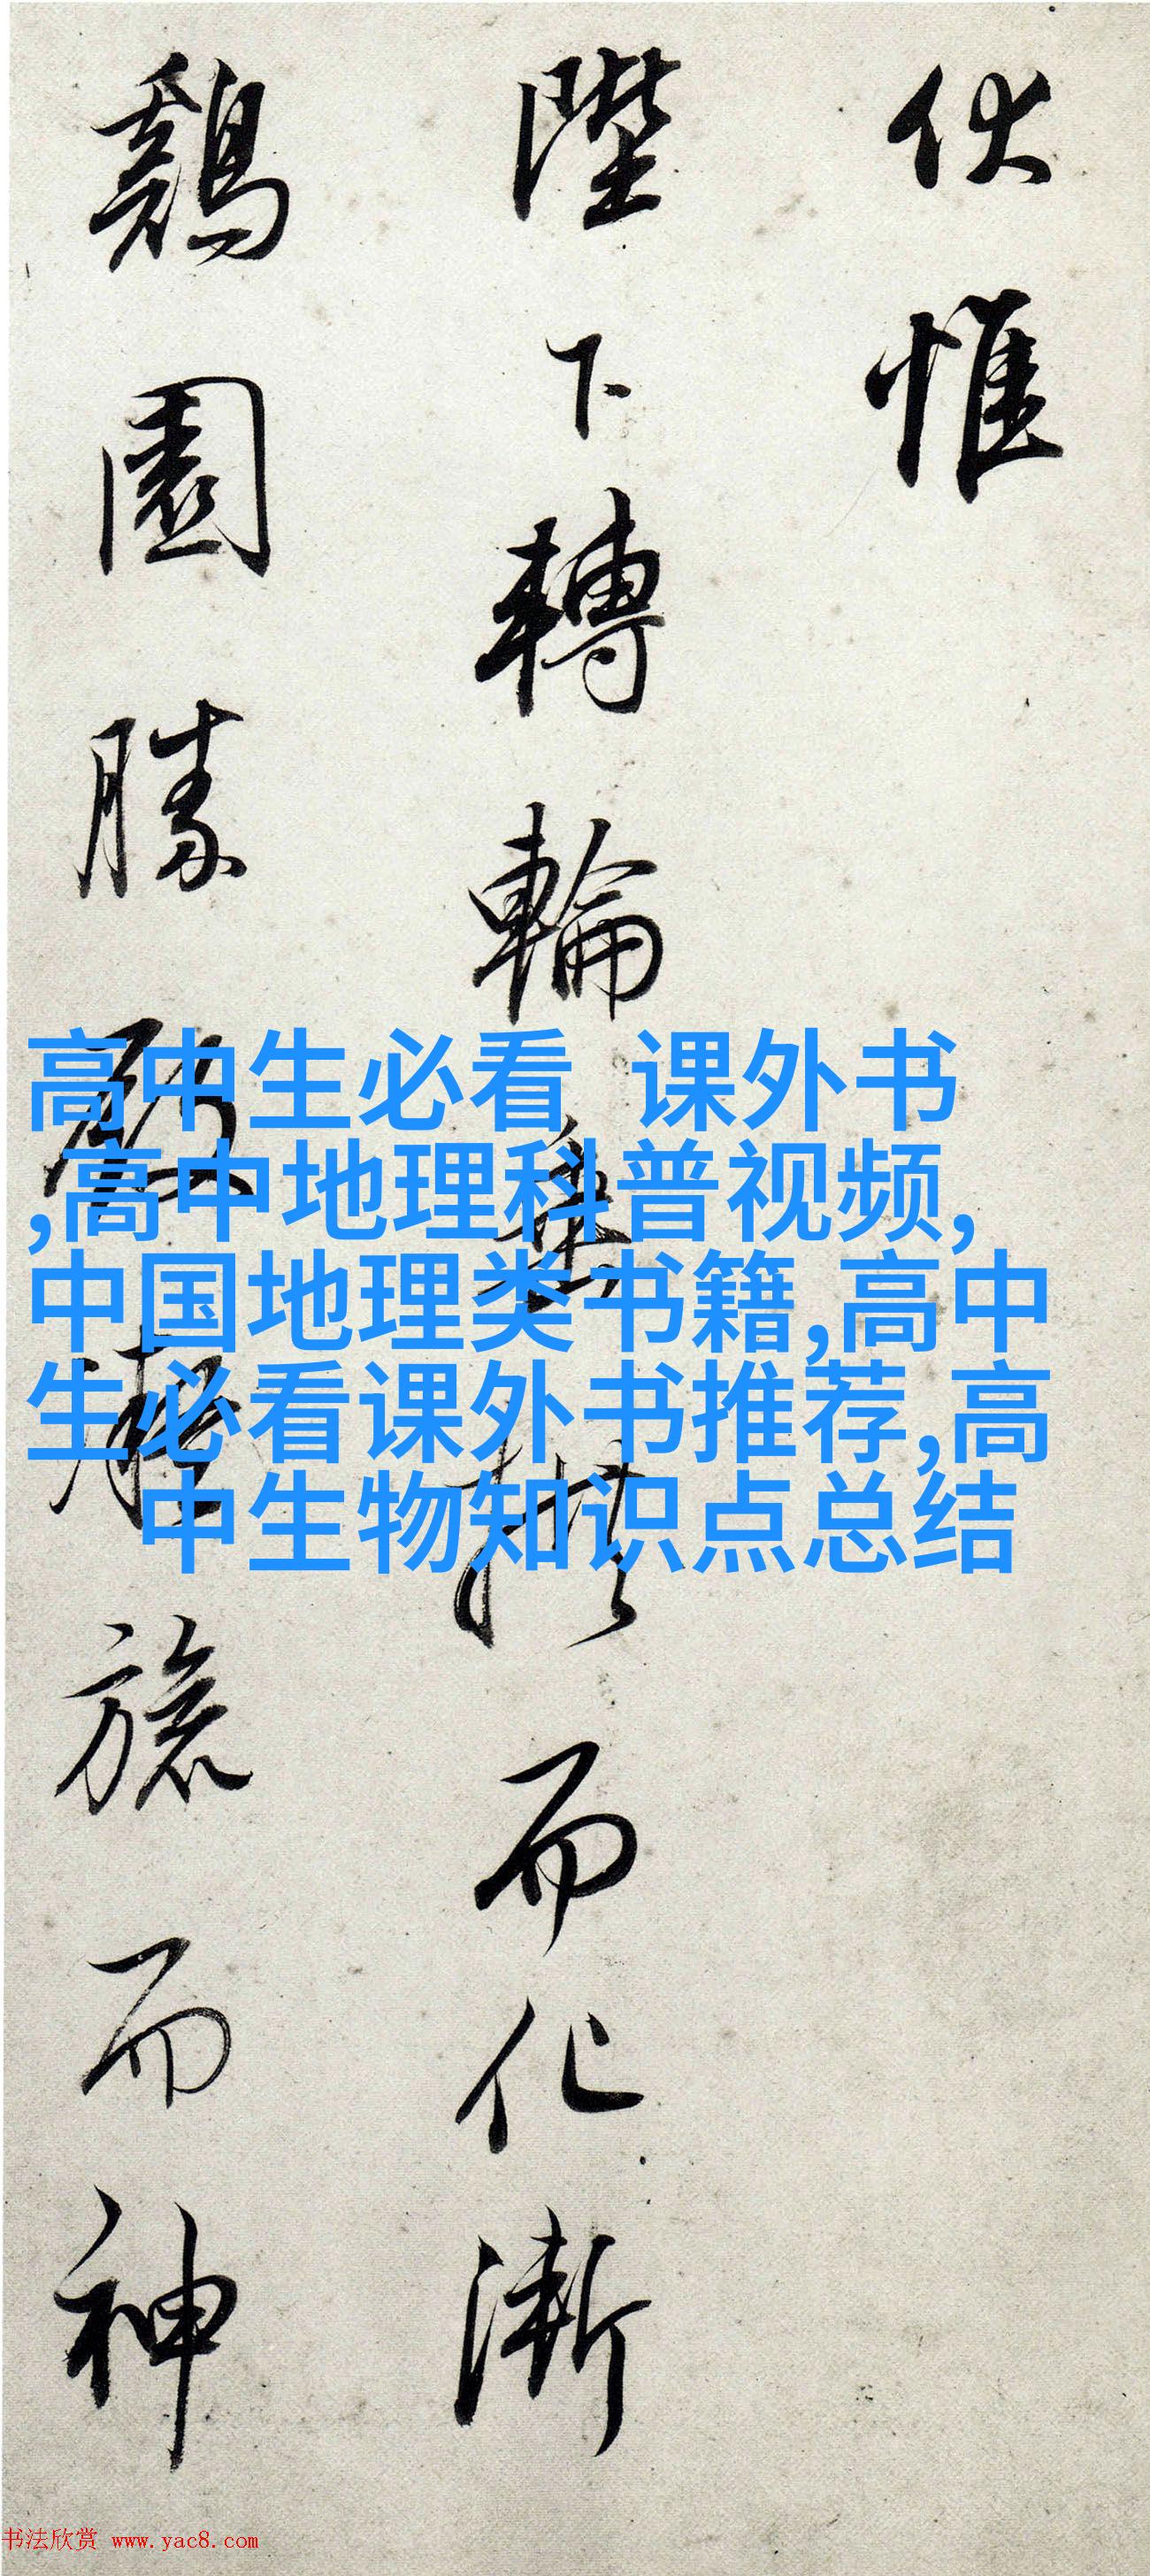 伏惟
陛下轉輪垂拱而化漸
鷄園勝殿凝旒而神
高中生必看 课外书
,高中地理科普视频,
中国地理类书籍,高中
生必看课外书推荐,高
中生物知识点总结
书法欣赏 www.yac8.com